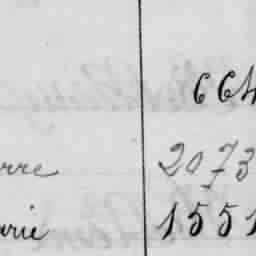 664
erre 2073
arie 1551